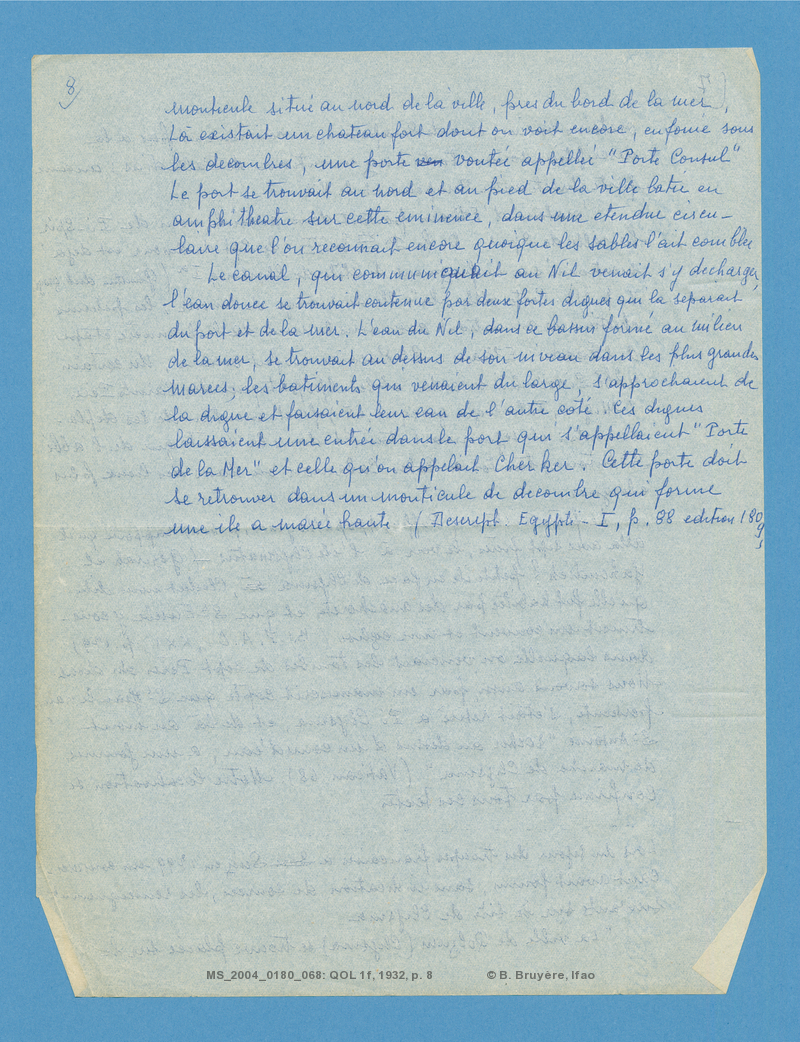 8
monticule situé au nord de la ville, pres du bord de la mer,
Là existait un chateau fort dont on voit encore, enfouie sous
les decombres, une porte voutée appellée "Porte Consul"
Le port se trouvait au nord et au pied de la ville batie en
amphitheatre sur cette eminence, dans une etendue circu-
laire que l'on reconnait encore quoique les sables l'ait comblée
Le canal, qui communiquait au Nil venait s'y decharger,
l'eau douce se trouvait contenue par deux fortes digues qui la separait
du port et de la mer. L'eau du Nil, dans ce bassin formé au milieu
de la mer, se trouvait au dessus de son niveau dans les plus grandes
marees; les batiments qui venaient du large, s'approchaient de
la digue et faisaient leur eau de l'autre coté. Ces digues
laissaient une entrée dans le port qui s'appellaient "Porte
de la Mer" et celle qu'on appelait Cherker. Cette porte doit
se retrouver dans un monticule de decombre qui forme
une ile a marée haute. (Descript. Egypte - I, p. 88 edition 1809)
MS_2004_0180_068: QOL 1f, 1932, p. 8 © B. Bruyère, Ifao